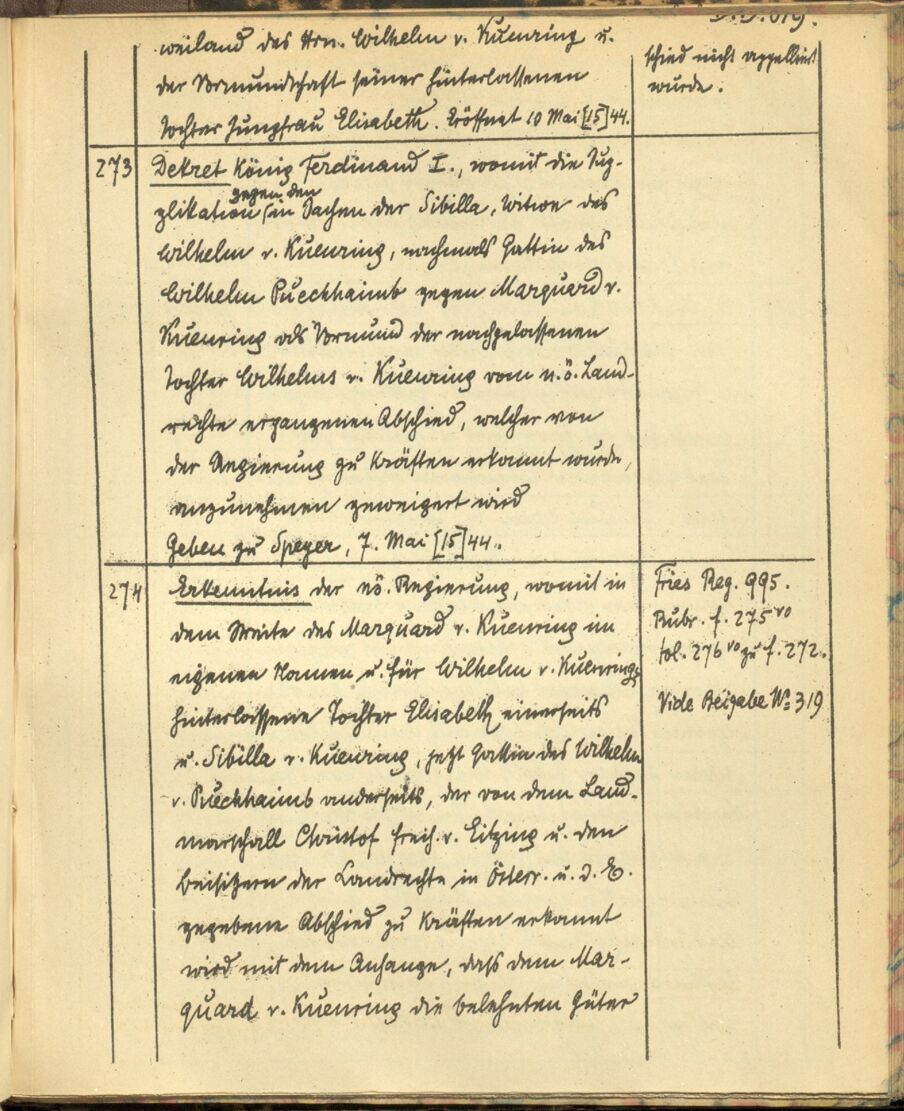 weiland des Hrn. Wilhelm v. Kuenring u.
der Vormundschaft seiner hinterlassenen
Tochter Jungfrau Elisabeth. Eröffnet 10 Mai [15]44.
schied nicht appelliert
wurde.
273
Dekret König Ferdinand I., womit die Sup-
gegen den
plikation (in Sachen der Sibilla, Witwe des
Wilhelm v. Kuenring, nachmals Gattin des
Wilhelm Pueckhaimb gegen Marquard v.
Kuenring als Vormund der nachgelassenen
Tochter Wilhelms v. Kuenring vom n.ö. Land-
rechte ergangenen Abschied, welcher von
der Regierung zu Kräften erkannt wurde,
anzunehmen geweigert wird
Geben zu Speyer, 7. Mai [15]44.
274
Erkenntnis der nö. Regierung, womit in
dem Streite des Marquard v. Kuenring im
eigenen Namen u. für Wilhelm v. Kuenrings
hinterlassene Tochter Elisabeth einerseits
u. Sibilla v. Kuenring, jetzt Gattin des Wilhelm
v. Pueckhaimb anderseits, der von dem Land-
marschall Christof freih. v. Eitzing u. den
Beisitzern der Landrechte in Österr. u. d. E.
gegebene Abschied zu Kräften erkannt
wird mit dem Anhange, daß dem Mar-
quard v. Kuenring die belehnten Güter
Fries Reg. 995.
Rubr. f. 275 vo
fol. 276 vo zu f. 272.
Vide Beigabe No 319